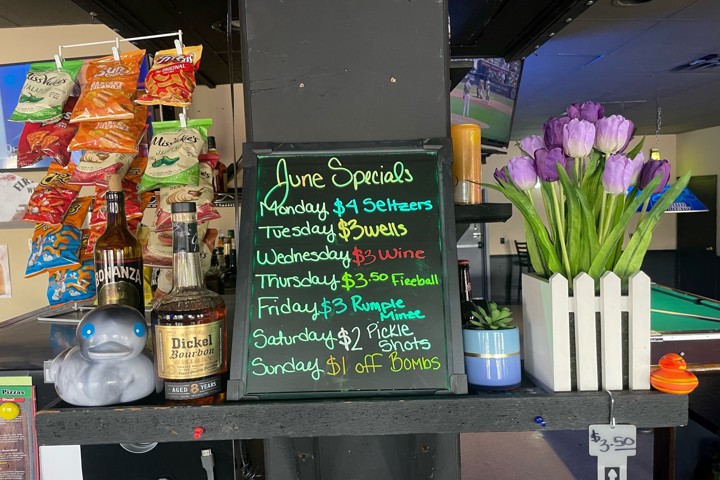 June Specials
Monday $4 Seltzers
Tuesday $3 wells
Wednesday $3 Wine
Thursday $3.50 Fireball
Friday $3 Rumple
Minze
Saturday $2 Pickle
Shots
Sunday $1 off Bombs
Miss Vickie's
Miss Vickie's
BONANZA
Dickel
Bourbon
AGED 8 YEARS
Pizzas
$3.50